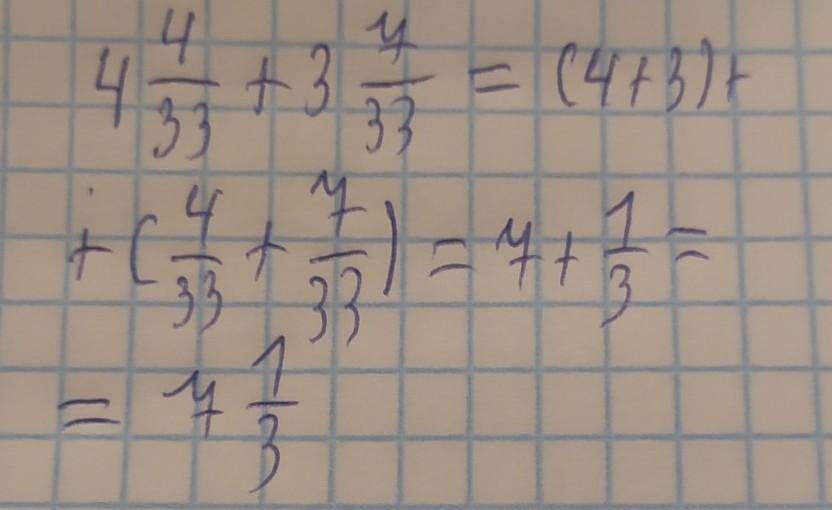 4 4/33 + 3 7/33 = (4+3)+
+ (4/33 + 7/33) = 7 + 1/3 =
= 7 1/3